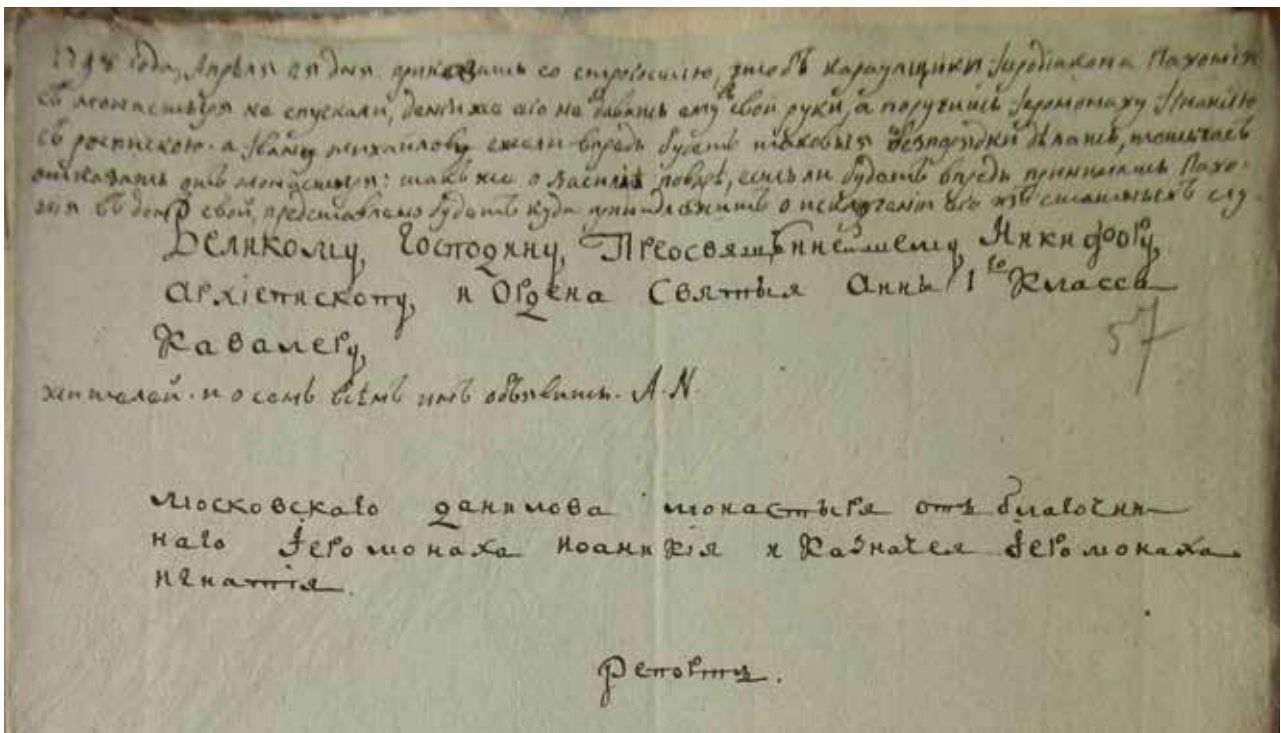 1798 года, Апрѣля 28 дня. приказать со строгостію, чтобъ караулщики Іеродіакона Пахомія
съ монастыря не спускали, денги же его не давать ему въ свои руки, а поручить Іеромонаху Игнатію
съ роспискою. а Ивану михайлову ежели впредь будетъ таковыя безпорядки дѣлать, тотчасъ
отказать отъ монастыря: такъ же о василіѣ поварѣ, если ли будетъ впредь принимать Пахо-
мія въ домъ свой, представлено будетъ куда принадлежитъ о исключеніи его изъ слу-
Великому, Господину, Преосвященнейшему, Никифору,
Архіепископу, и Ордена Святыя Анны 1го Класса
Кавалеру,
57
жителей. и о семъ всѣмъ имъ объявить. А. N.
московскаго данилова монастыря отъ благочин
наго Іеромонаха иоаникія и казначея Іеромонаха
игнатія.
репортъ.